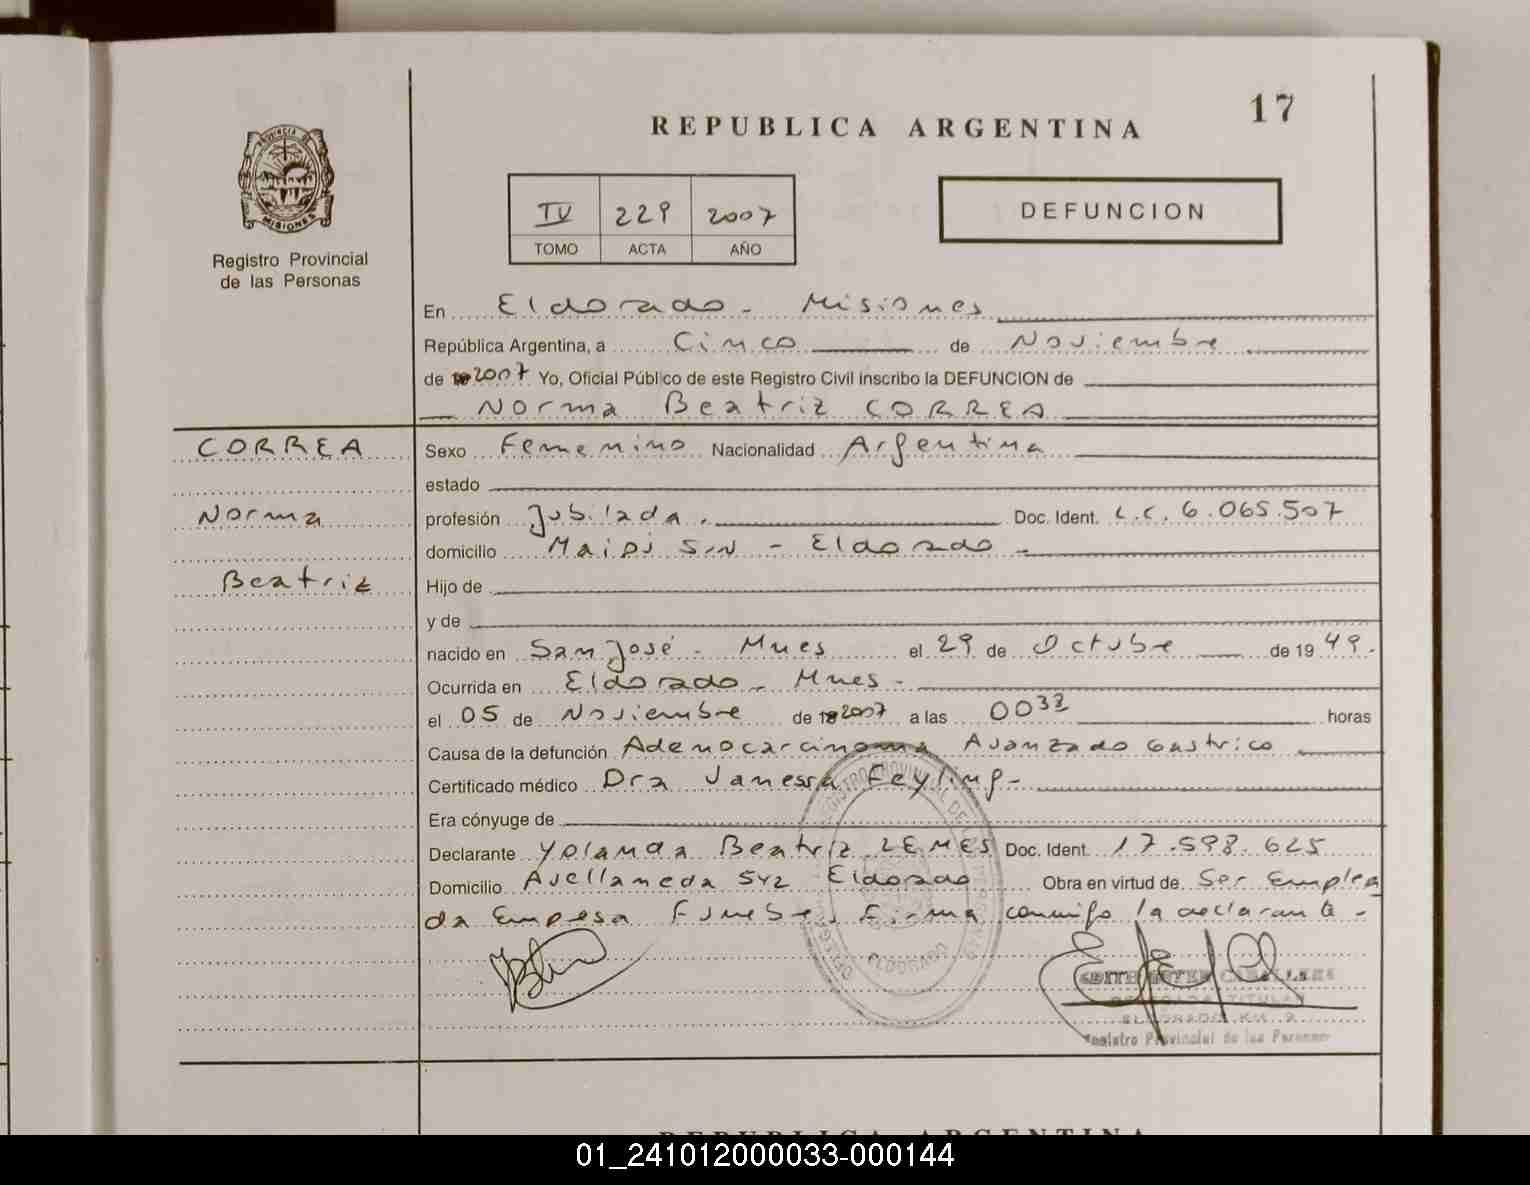 17
REPUBLICA ARGENTINA
PROVINCIA DE
MISIONES
Registro Provincial
de las Personas
IV 229 2007
TOMO ACTA AÑO
DEFUNCION
En Eldorado - Misiones
República Argentina, a Cinco de Noviembre
de 2007 Yo, Oficial Público de este Registro Civil inscribo la DEFUNCION de
Norma Beatriz CORREA
CORREA
Norma
Beatriz
Sexo Femenino Nacionalidad Argentina
estado
profesión Jubilada. Doc. Ident. L.C. 6.065.507
domicilio Maipú S/N - Eldorado -
Hijo de
y de
nacido en San José - Mnes el 29 de Octubre de 1949.
Ocurrida en Eldorado - Mnes -
el 05 de Noviembre de 2007 a las 00 horas
Causa de la defunción Adenocarcinoma Avanzado Gastrico
Certificado médico Dra Janessa Feyling -
Era cónyuge de
Declarante Yolanda Beatriz LEMES Doc. Ident. 17.598.625
Domicilio Avellaneda 542 Eldorado Obra en virtud de Ser Emplea
da Empesa Funebre, Firma conmigo la declarante -
ELDORADO
ELDORADO KM. 9
Registro Provincial de las Personas
REPUBLICA ARGENTINA
01_241012000033-000144